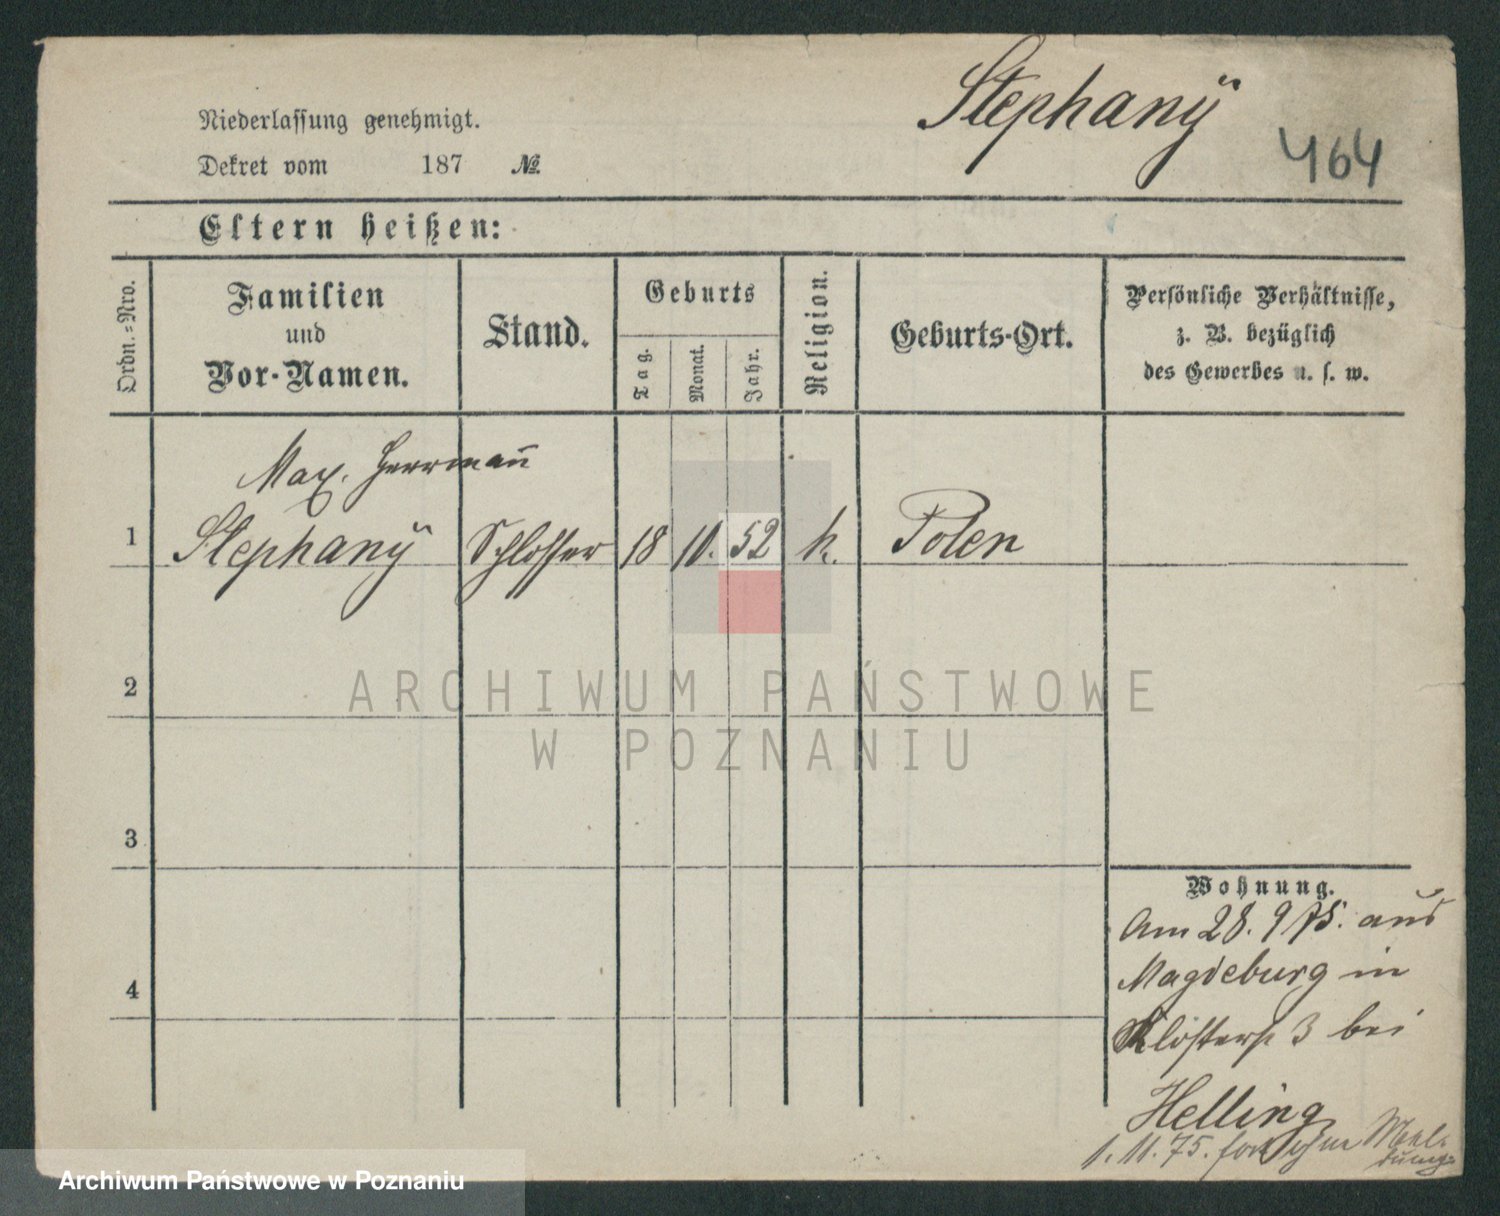 Stephanÿ
464
Niederlassung genehmigt.
Dekret vom 187 №
Eltern heißen:
Ordn.-Nro.
Familien
und
Vor-Namen.
Stand.
Geburts
Tag.
Monat.
Jahr.
Religion.
Geburts-Ort.
Persönliche Verhältnisse,
z. B. bezüglich
des Gewerbes u. s. w.
Max. Herrmañ
1 Stephanÿ Schlosser 18 10. 52 k. Polen
2
ARCHIWUM PAŃSTWOWE
W POZNANIU
3
4
Wohnung.
Am 28. 9 75. aus
Magdeburg in
Klosterst 3 bei
Helling
1. 11. 75. fort ohne Mel-
dung
Archiwum Państwowe w Poznaniu